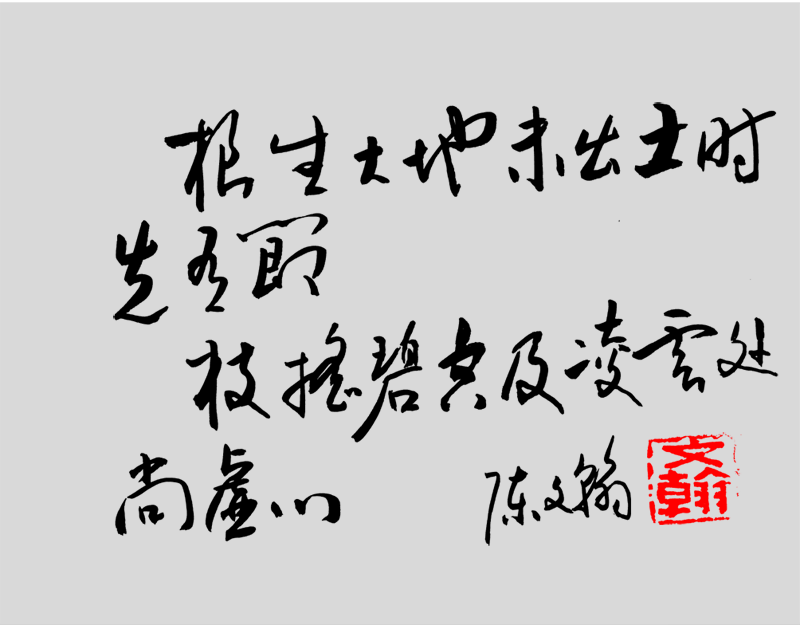 根生大地未出土时
先有節
枝摇碧空及凌雲处
尚虚心
陈文翰
文翰